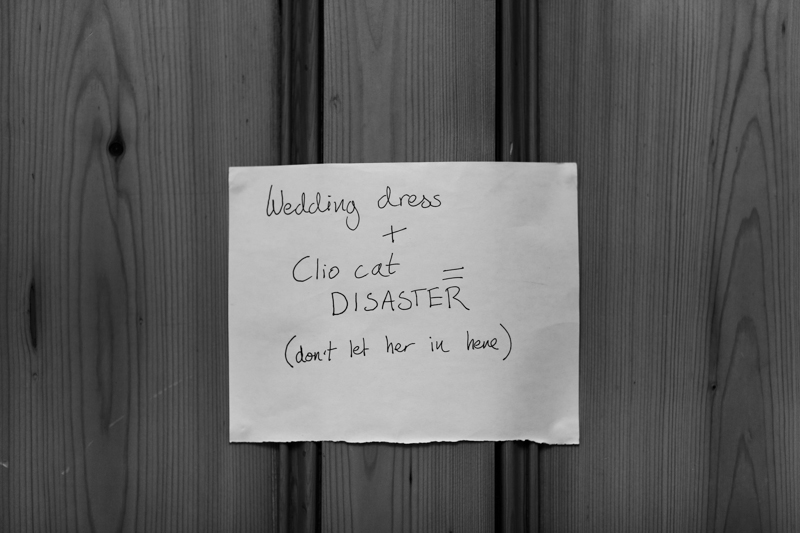 Wedding dress
+
Clio cat =
DISASTER
(don't let her in here)